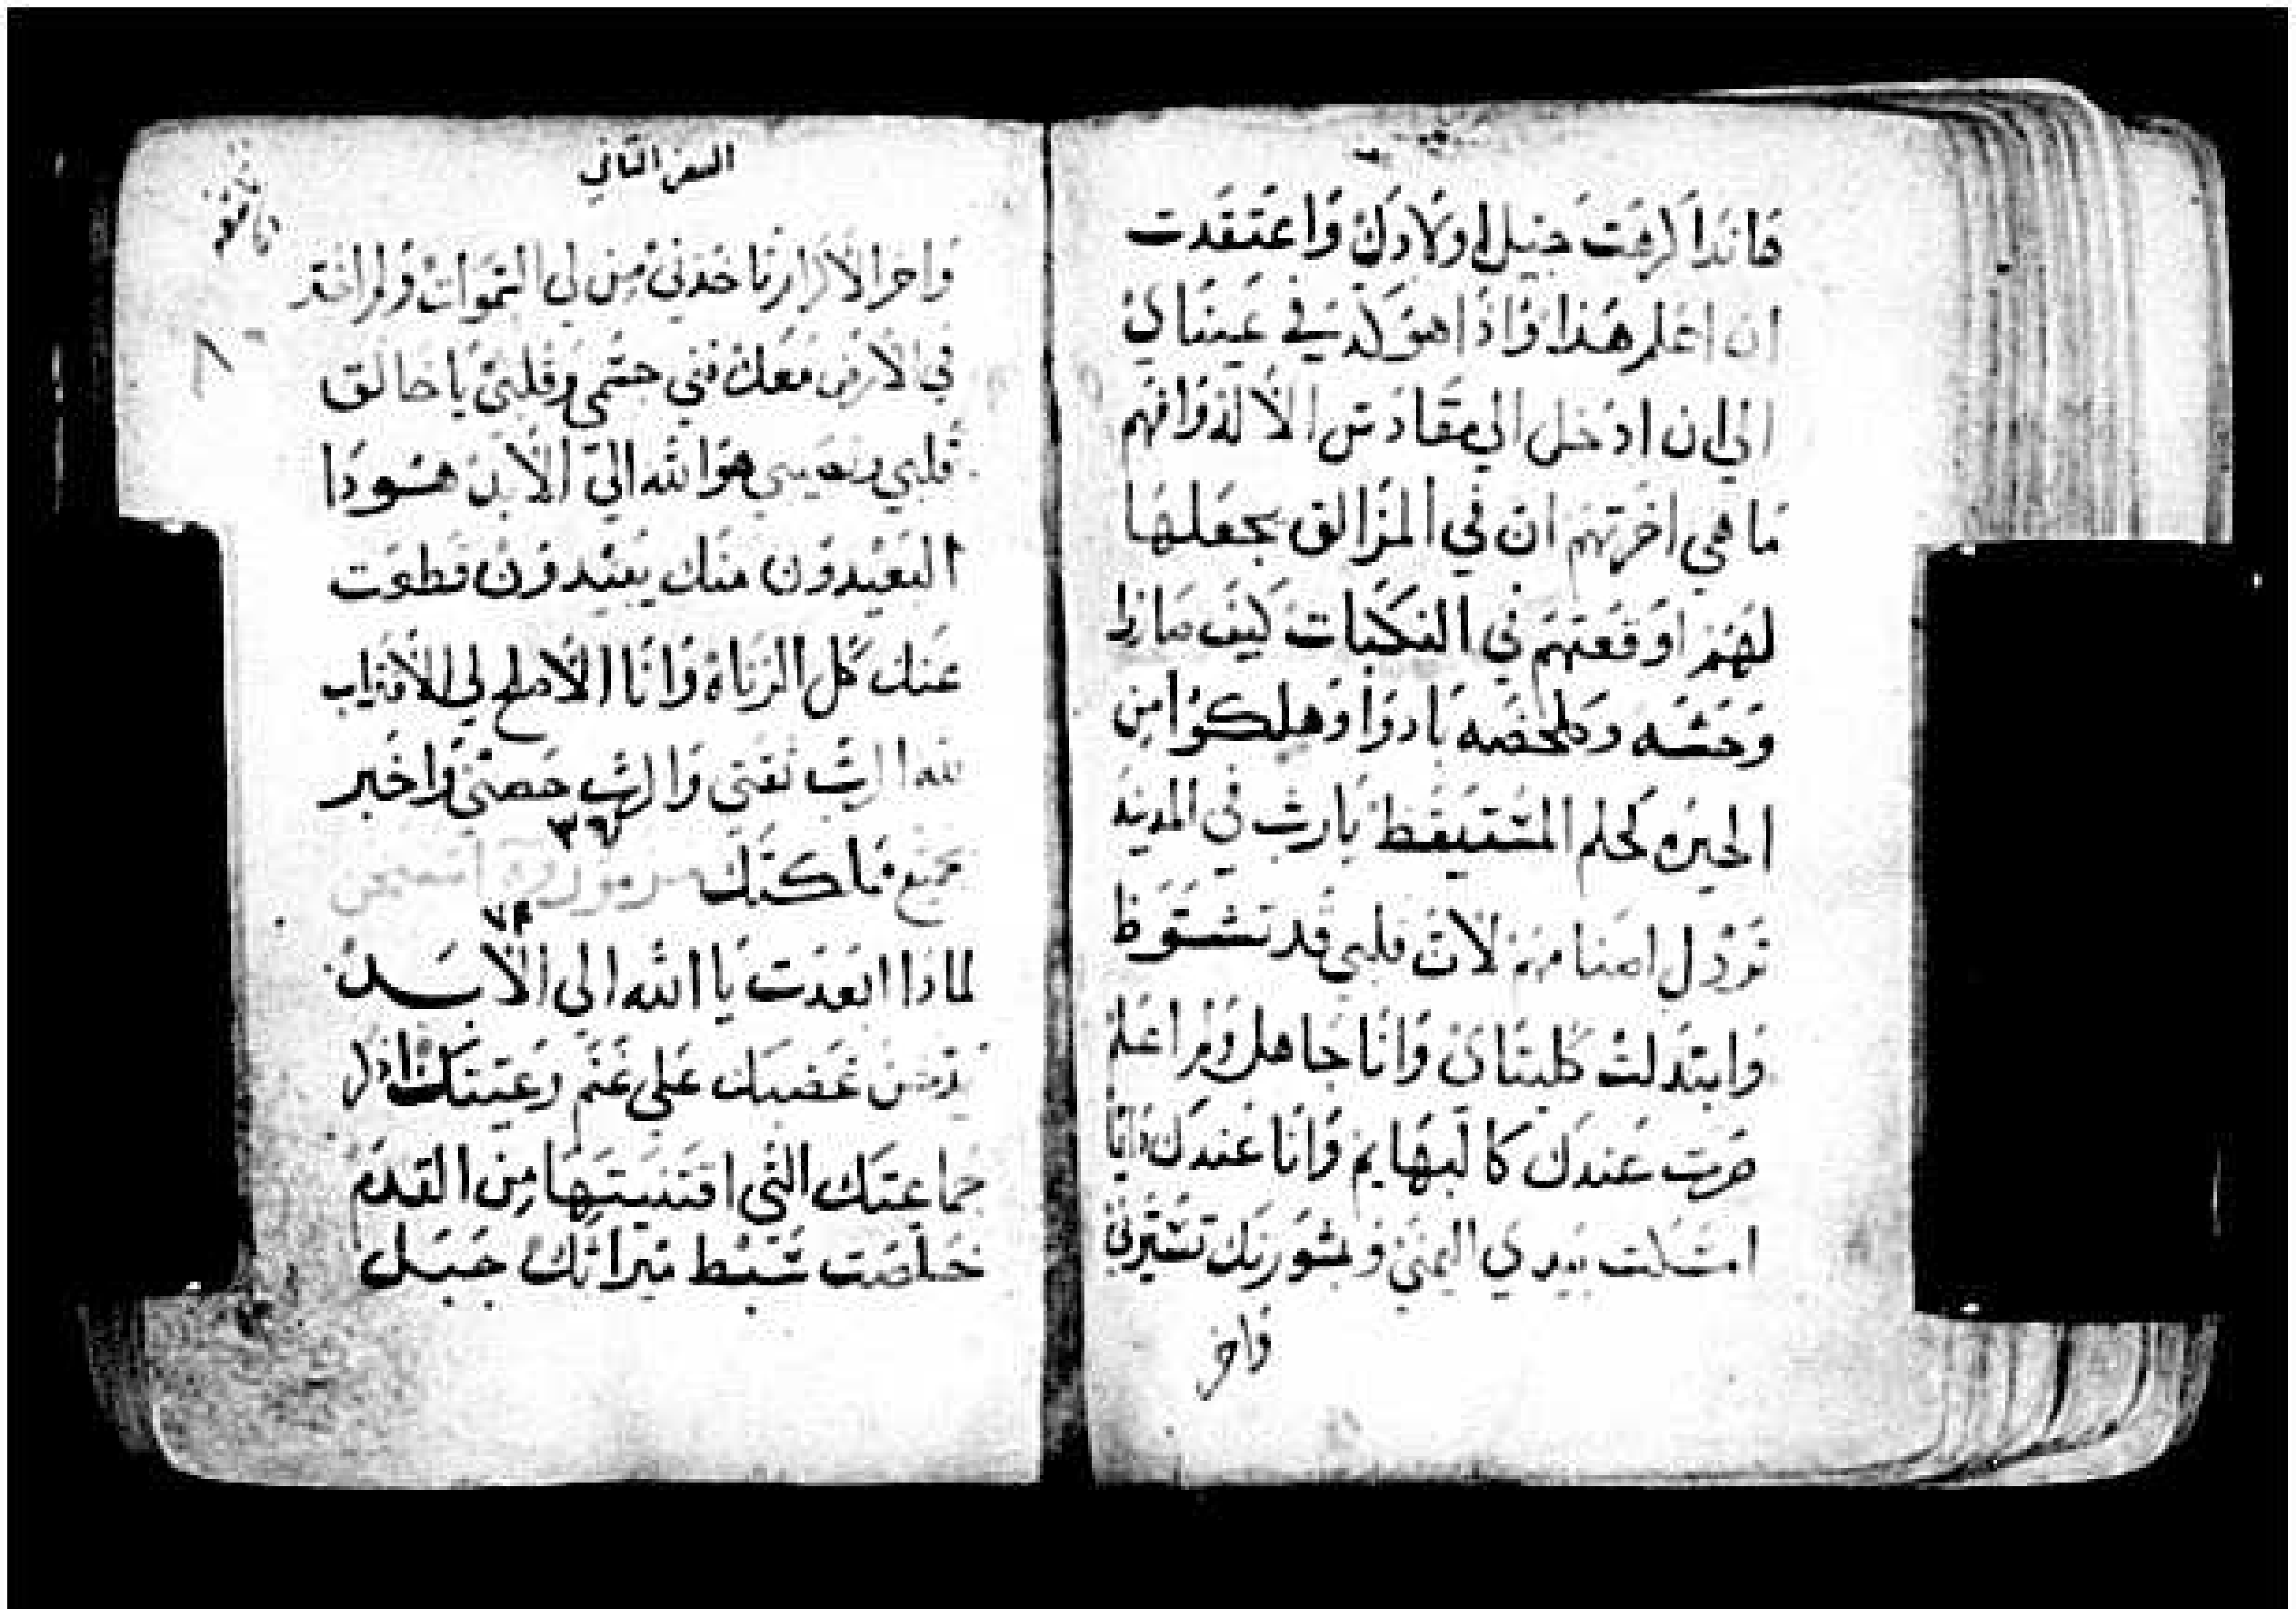 فانذا كرهت جيل اولادك واعتقدت
ان اعلم هذا واذا هو كد في عيناي
الي ان ادخل الي مقادس الاله وافهم
ما هي اخرتهم ان في المزالق جعلها
لهم اوقعتهم في النكبات كيف صاروا
وحشه بادوا وهلكوا من
الحيره كحلم المستيقظ يارب في المدينه
تردل اصنامهم لان قلبي قد تشوظ
وابتدلت كليتاي وانا جاهل ولم اعلم
صرت عندك كالبهايم وانا عندك دايما
امسكت بيدي اليمني وبشورتك تسيرني
واخر
السفر التاني
واخر الاكرام تاخذني من لي السموات ولم اختر
في الارض معك فني جسمي وقلبي يا خالق
قلبي ونصيبي هو الله الي الابد هوذا
البعيدون منك يبيدون قطعت
عنك كل الزناه وانا الاصلح لي الاقتراب
لله الرب ثقتي والرب حصني واخبر
٣٦
جميع ملكتك
٧٣
لماذا ابعدت يا الله الي الابد
غضبك علي غنم رعيتك اذكر
جماعتك التي اقتنيتها من القدم
خلصت سبط ميراثك جبل